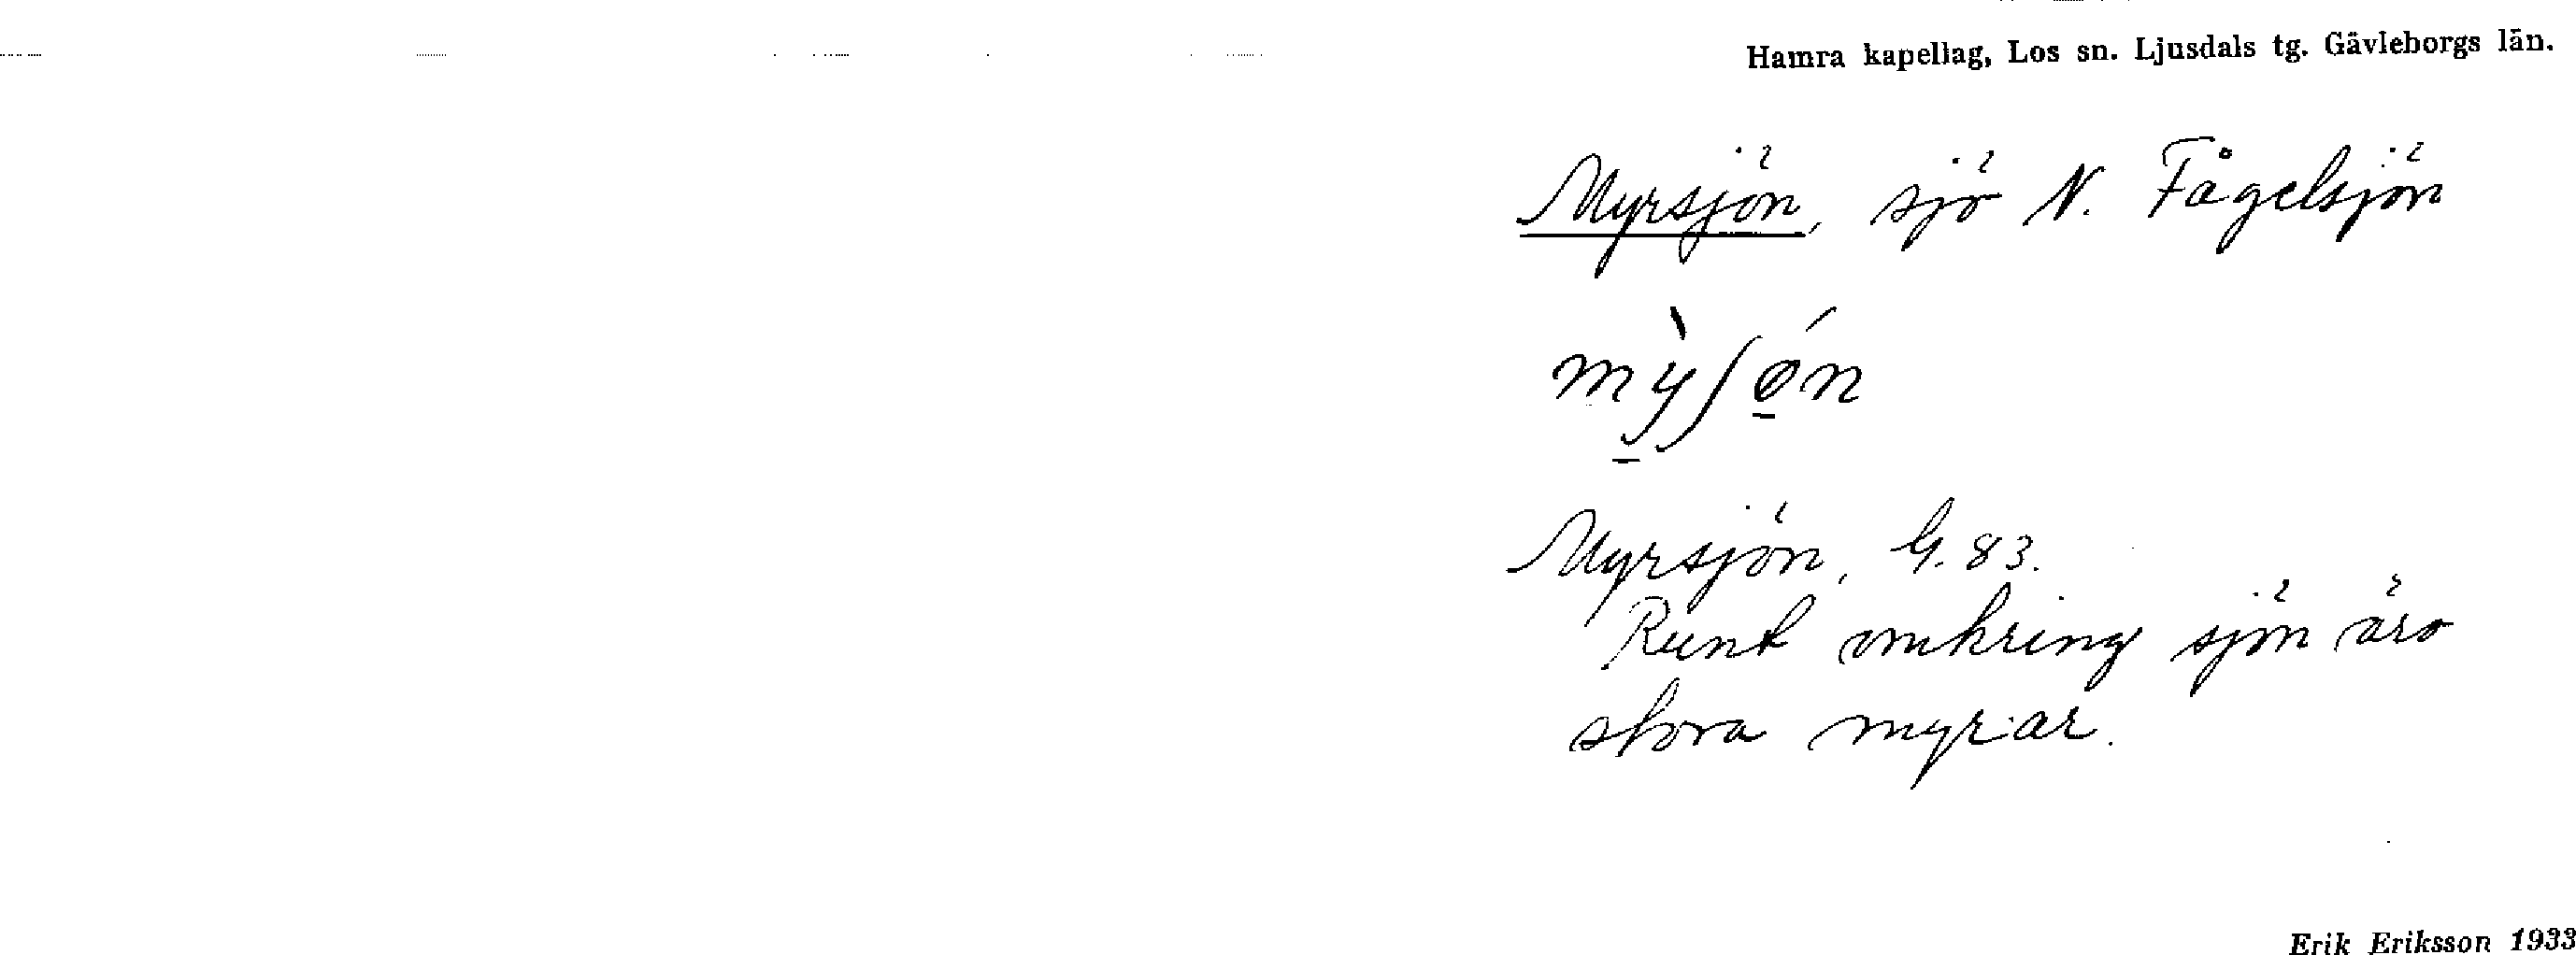 Hamra kapellag, Los sn. Ljusdals tg. Gävleborgs län.
Myrsjön, sjö N. Fågelsjön
mỳʃǿn
Myrsjön, G. 83.
Runt omkring sjön äro
stora myrar.
Erik Eriksson 1933